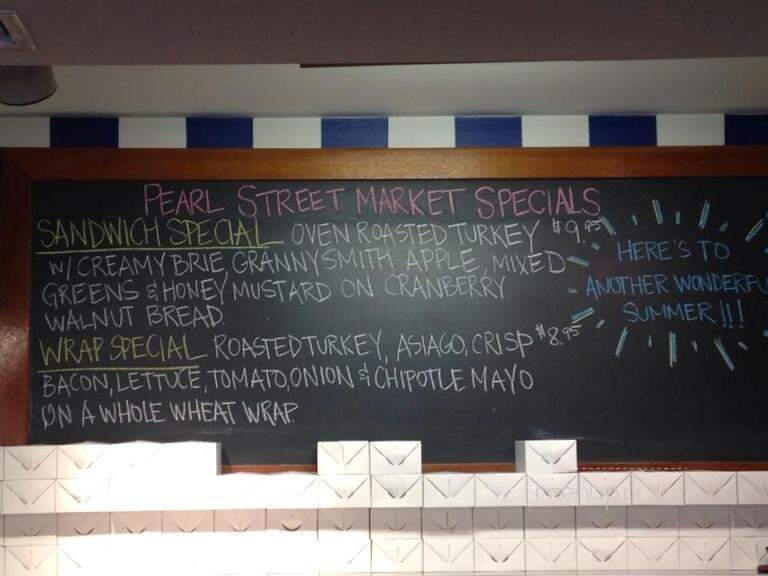 PEARL STREET MARKET SPECIALS
SANDWICH SPECIAL OVEN ROASTED TURKEY $9.95
W/ CREAMY BRIE, GRANNY SMITH APPLE, MIXED
GREENS & HONEY MUSTARD ON CRANBERRY
WALNUT BREAD.
WRAP SPECIAL ROASTED TURKEY, ASIAGO, CRISP $8.95
BACON, LETTUCE, TOMATO, ONION & CHIPOTLE MAYO
ON A WHOLE WHEAT WRAP.
HERE'S TO
ANOTHER WONDERFU
SUMMER!!!